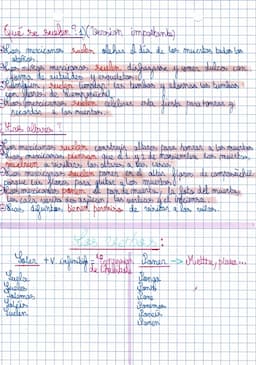 Qué se suelen ? 1) (Versión importante)
Los mexicanos suelen celebrar el día de los muertos todos los
años.
Los niños mexicanos suelen disfrazarse y comer dulces con
forma de ataúdes y esqueletos.
También, suelen limpiar las tumbas y adornar las tumbas
con flores de
Los mexicanos suelen celebrar esta fiesta para honrar y
recordar a los muertos.
Los altares !
Los mexicanos suelen construir altares para honrar a los muertos
Los mexicanos piensan que el 1 y 2 de noviembre los muertos
vuelven a visitar los altares a las casas.
Los mexicanos suelen poner en el altar flores de
porque las flores para guiar a los muertos.
Los mexicanos ponen el pan de muerto, la foto del muerto
las calaveras de azúcar, las velas y el incienso.
Los difuntos tienen permiso de visitar a los vivos.
Los verbos :
Soler + v. infinitivo =
Poner → Mettre, placer...
Suelo
Sueles
Suele
Solemos
Soléis
Suelen
Pongo
Pones
Pone
Ponemos
Ponéis
Ponen